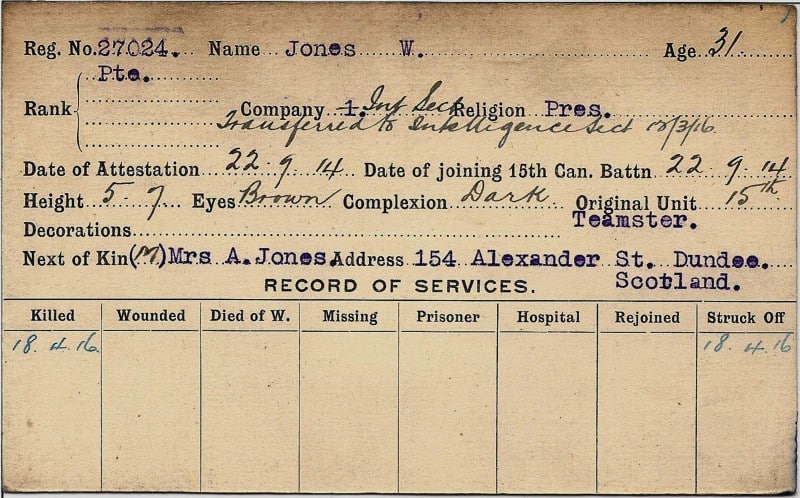 Reg. No. 27024. Name Jones W. Age 31
Pte.
Rank Company 1. Int Sect Religion Pres.
Transferred to Intelligence Sect 12/3/16
Date of Attestation 22 9 14 Date of joining 15th Can. Battn 22 9 14
Height 5 7 Eyes Brown Complexion Dark Original Unit 15th
Decorations Teamster.
Next of Kin (M) Mrs A. Jones. Address 154 Alexander St. Dundee.
RECORD OF SERVICES. Scotland.
Killed Wounded Died of W. Missing Prisoner Hospital Rejoined Struck Off
18.4.16 18.4.16